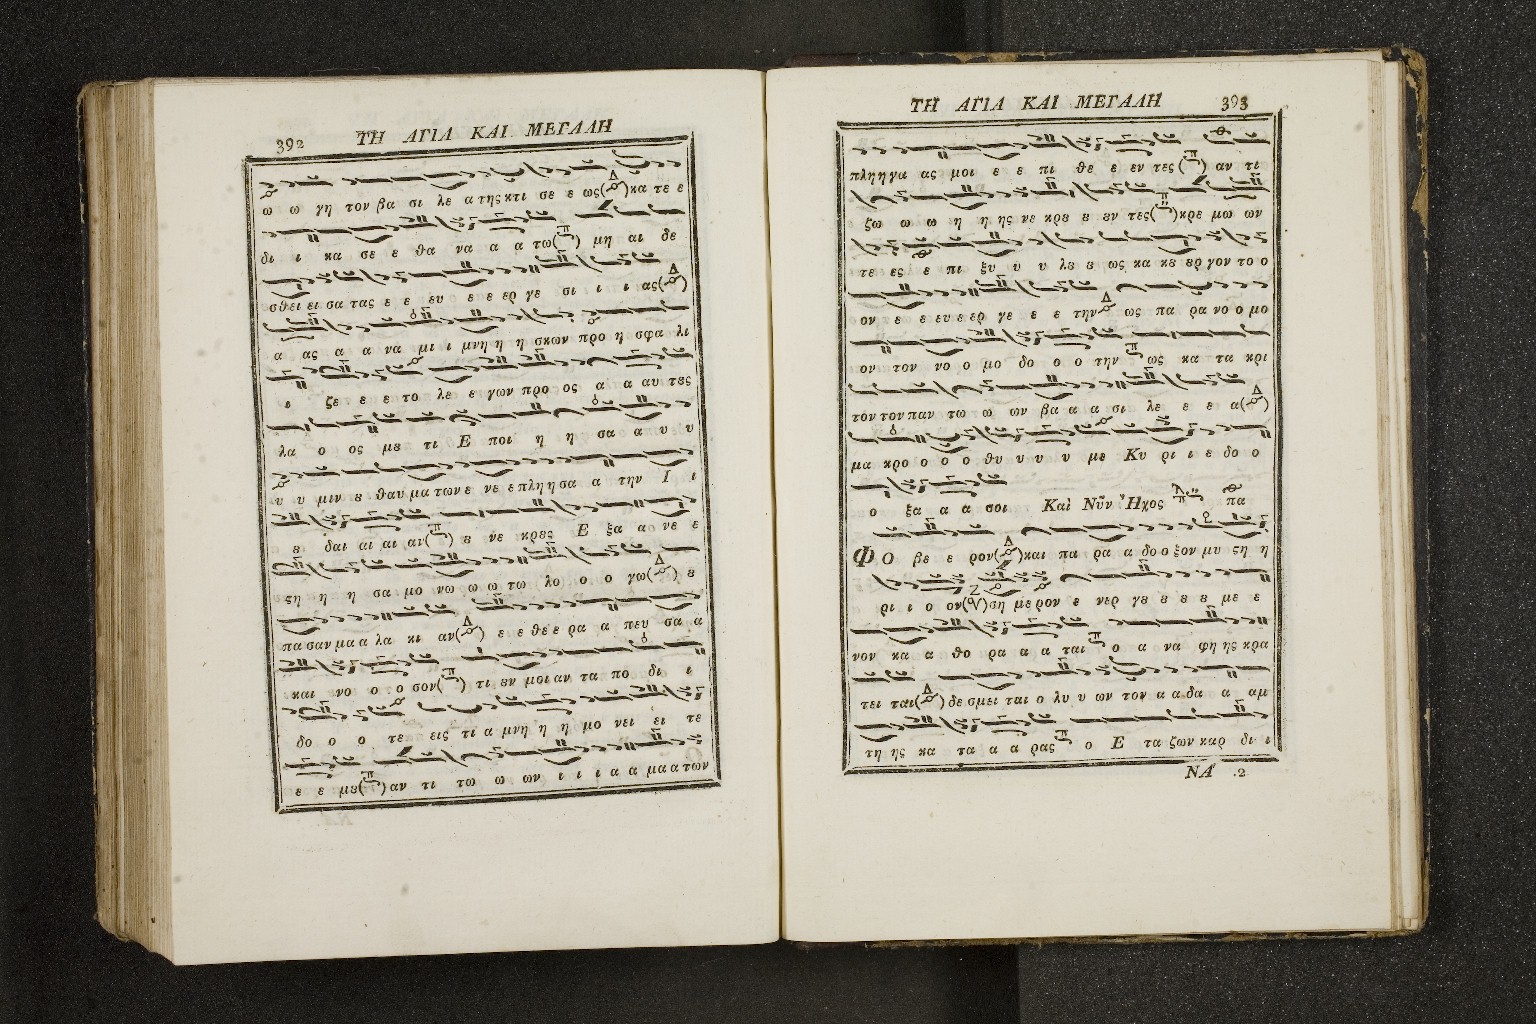 392 ΤΗ ΑΓΙΑ ΚΑΙ ΜΕΓΑΛΗ
ω ω γη τον βα σι λε α της κτι σε ε ως(Δ) κα τε ε
δι ι κα σε ε θα να α α τω(π) μη αι δε
σθει ει σα τας ε ε ευ ε ε ερ γε σι ι ι ας(Δ)
α ας α α να μι ι μνη η η σκων προ η σφα λι
ι ζε ε ε το λε ε γων προ ος α α αυ τȣς
λα ο ος μȣ τι Ε ποι η η σα α υ υ
υ υ μιν ȣ θαυ μα των ε νε ε πλη η σα α την Ι ι
ȣ δαι αι αι αι αν(π) ȣ νε κρȣς Ε ξα α νε ε
ςη η η σα μο νω ω ω τω λο ο ο γω(Δ) ȣ
πα σαν μα α λα κι αν(Δ) ε ε θε ε ρα α πευ σα α
και νο ο ο σον(π) τι ȣν μοι αν τα πο δι ι
δο ο ο τε εις τι α μνη η η μο νει ει τε
ε ε μȣ(π) αν τι τω ω ων ι ι ι α α μα α των
ΤΗ ΑΓΙΑ ΚΑΙ ΜΕΓΑΛΗ 393
πλη η γα ας μοι ε ε πι θε ε εν τες(π) αν τι
ζω ω ω η η ης νε κρȣ ȣ ȣν τες(π) κρε μω ων
τε ες ε πι ξυ υ υ λȣ ȣ ως κα κȣ ȣρ γον το ο
ον ε ε ευ ε ερ γε ε ε την Δ ως πα ρα νο ο μο
ον τον νο ο μο δο ο ο την π ως κα τα κρι
τον τον παν τω ω ων βα α α σι λε ε ε α(Δ)
μα κρο ο ο ο θυ υ υ υ με Κυ ρι ι ε δο ο
ο ξα α α σοι Καὶ Νῦν Ἦχος πα
ΦΟ βε ε ρον(Δ) και πα ρα α δο ο ξον μυ ςη η
ρι ι ο ον ση με ρον ε νερ γȣ ȣ ȣ ȣ με ε
νον κα α θο ρα α α ται π ο α να φη ης κρα
τει ται(Δ) δε σμει ται ο λυ υ ων τον α α δα α αμ
τη ης κα τα α α ρας π ο Ε τα ζων καρ δι ι
ΝΑ 2